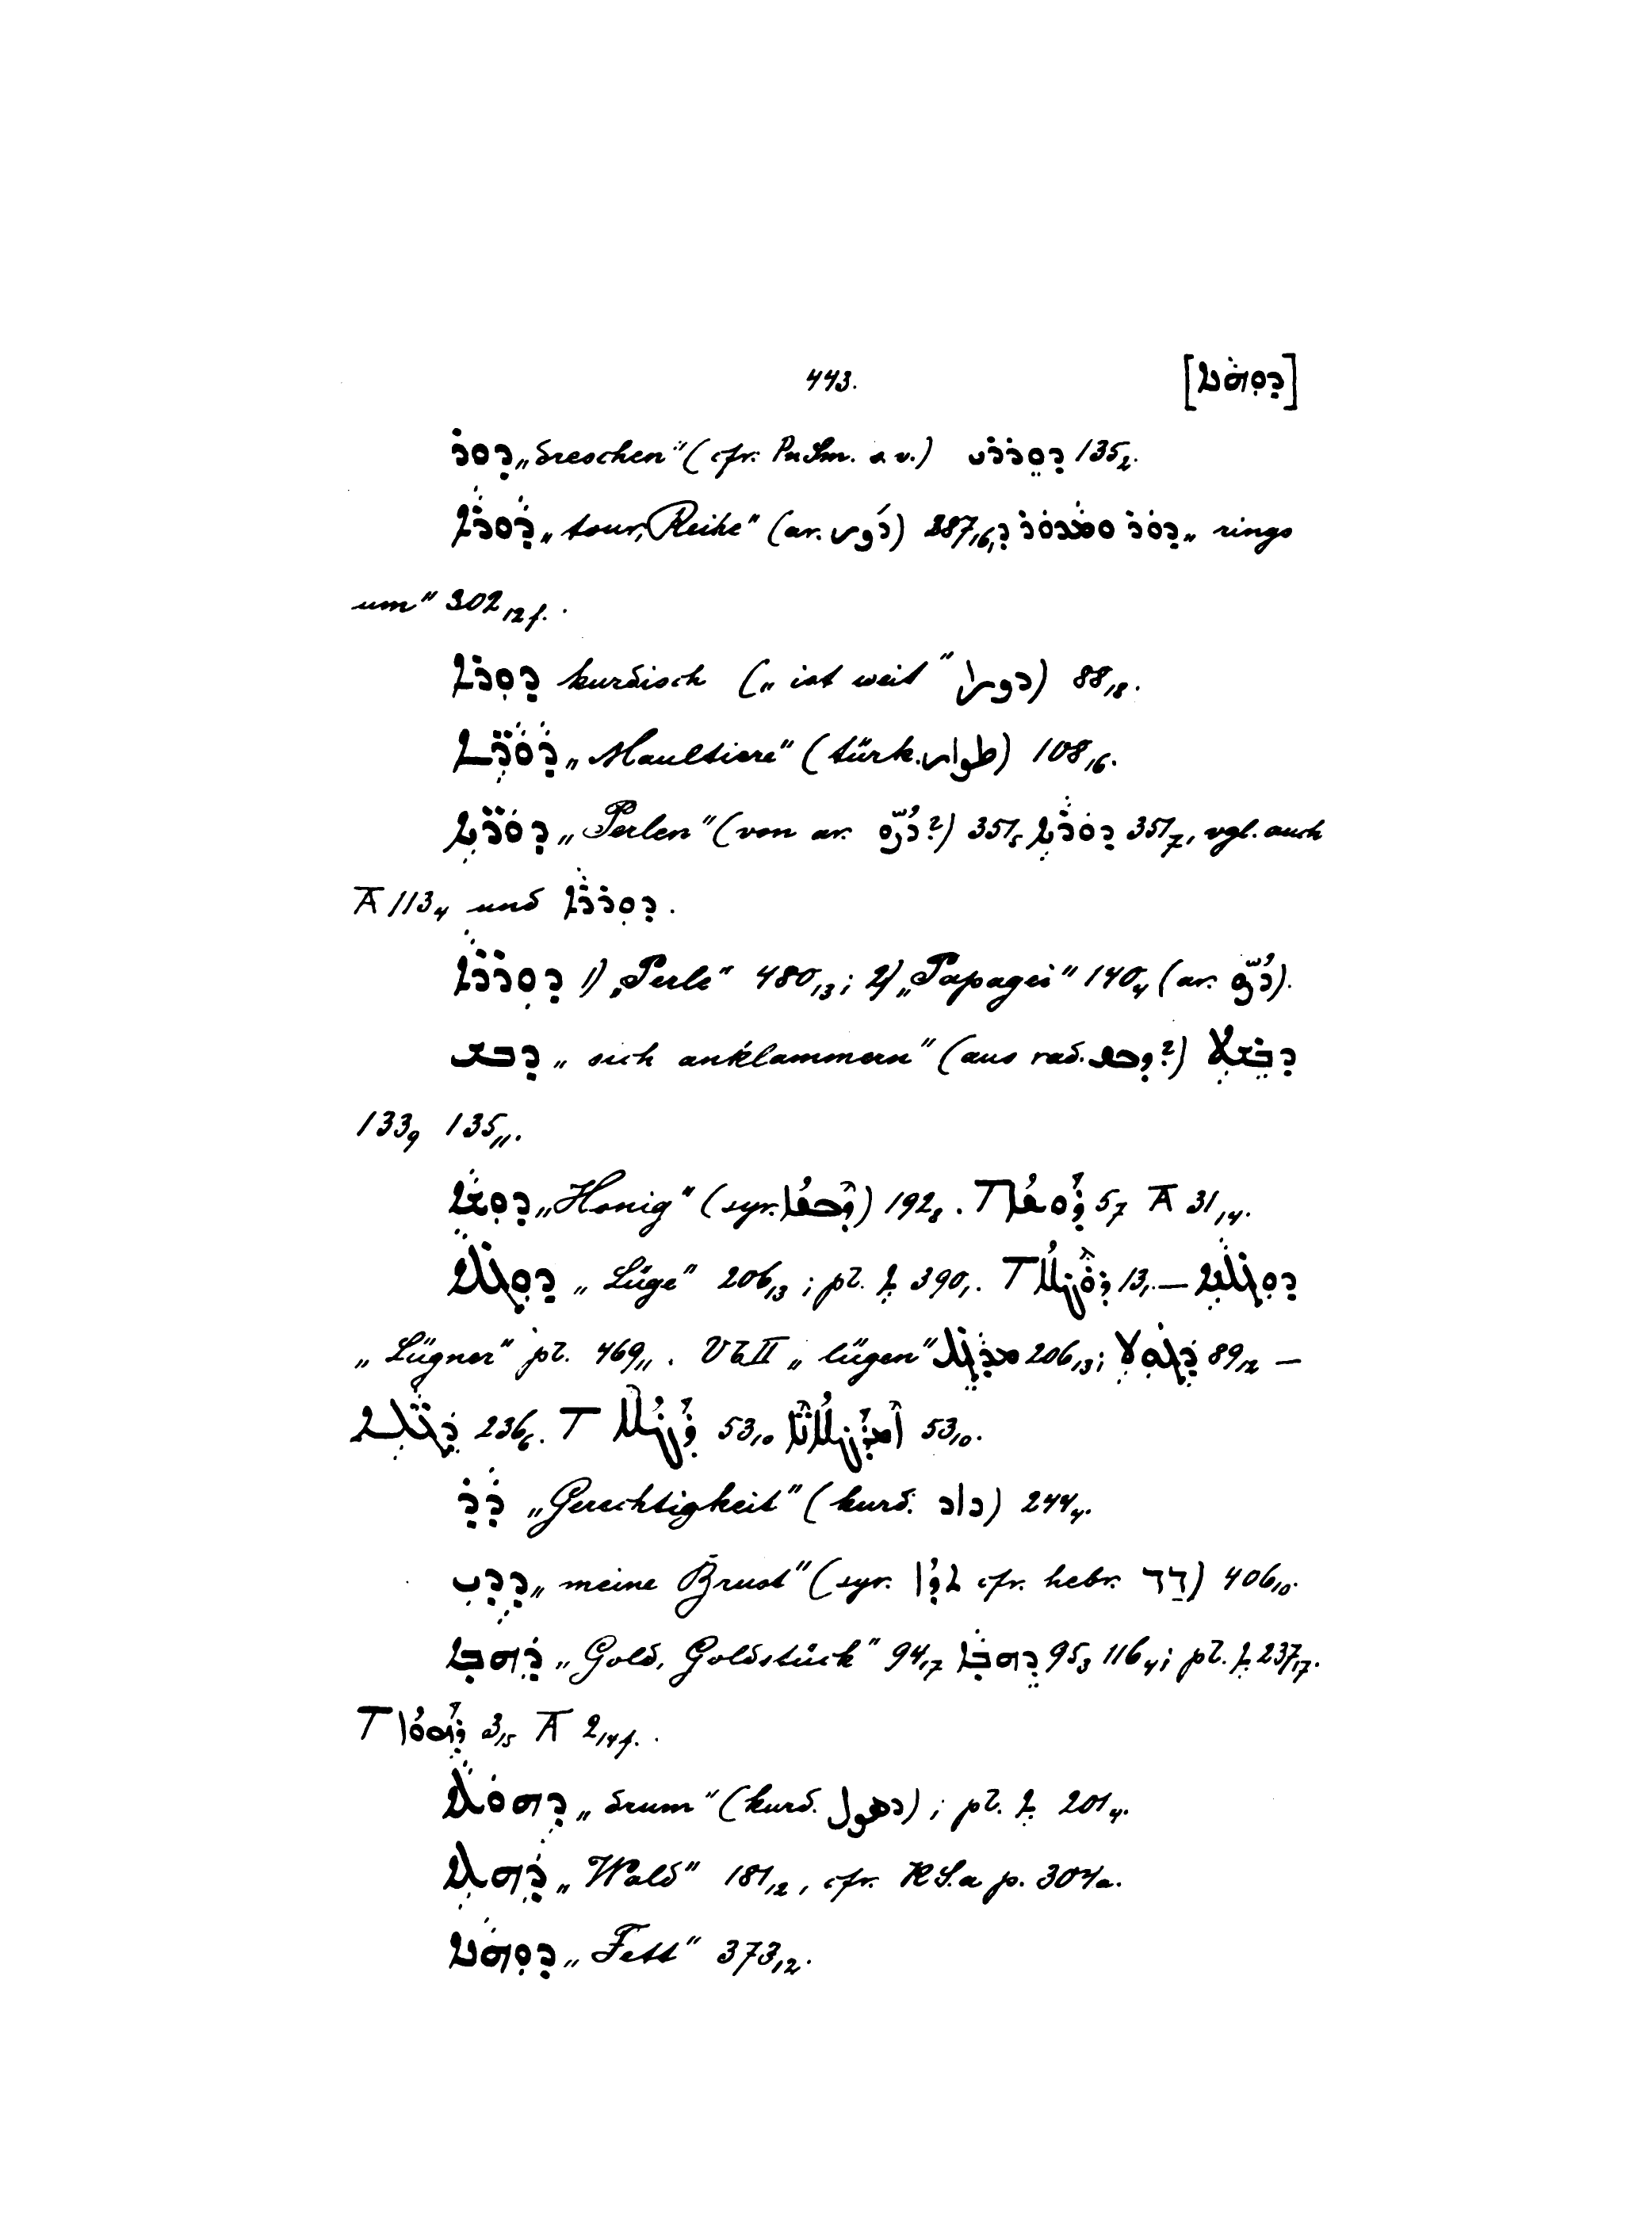 443. [ܕܘܗܢܐ]
ܕܘܪ „dreschen“ (cfr. Pn Sm. s. v.) 135₂.
ܕܘܪܐ „tour, Reihe“ (ar. دَور) 387,₁₆, ܕܘܪ ܘܡܕܘܪ „rings
um“ 302₁₂f..
ܕܘܪܐ kurdisch („ist weit“ دورا) 88,₈.
„Maultiere“ (türk. طوار) 108,₁₆.
„Perlen“ (von ar. دُرّه?) 351₅ 351₇, vgl. auch
A 113₄ und ܕܘܪܪܐ.
ܕܘܪܪܐ 1) „Perle“ 480,₁₃; 2) „Papagei“ 140₄ (ar. دُرّه).
ܕܒܫ „sich anklammern“ (aus rad. ܕܒܩ?)
133₉ 135₁₁.
ܕܘܫܐ „Honig“ (syr. ܕܒܫܐ) 192₈. T ܕܘܫܐ 5₇ A 31,₁₄.
ܕܘܓܠܐ „Lüge“ 206,₁₃; pl. ܐ 390,. T ܕܘܓܠܐ 13,. —
„Lügner“ pl. 469₁₁. Vb II „lügen“ ܡܕܓܠ 206,₁₃; 89₁₂ —
236₆. T ܕܓܠܐ 53,₁₀ 53,₁₀.
ܕܕ „Gerechtigkeit“ (kurd. داد) 244₄.
ܕܕܝ „meine Brust“ (syr. ܬܕܐ cfr. hebr. דד) 406,₁₀.
ܕܗܒܐ „Gold, Goldstück“ 94,₁₇ ܕܗܒܐ 95₃ 116₄; pl. ܐ 237,₁₇.
T ܕܗܘܐ 3,₁₅ A 2,₁₄f..
ܕܗܘܠܐ „drum“ (kurd. دهول); pl. ܐ 201₄.
ܕܗܠܐ „Wald“ 181,₁₂, cfr. RS.a p. 304a.
ܕܘܗܢܐ „Fett“ 373,₁₂.